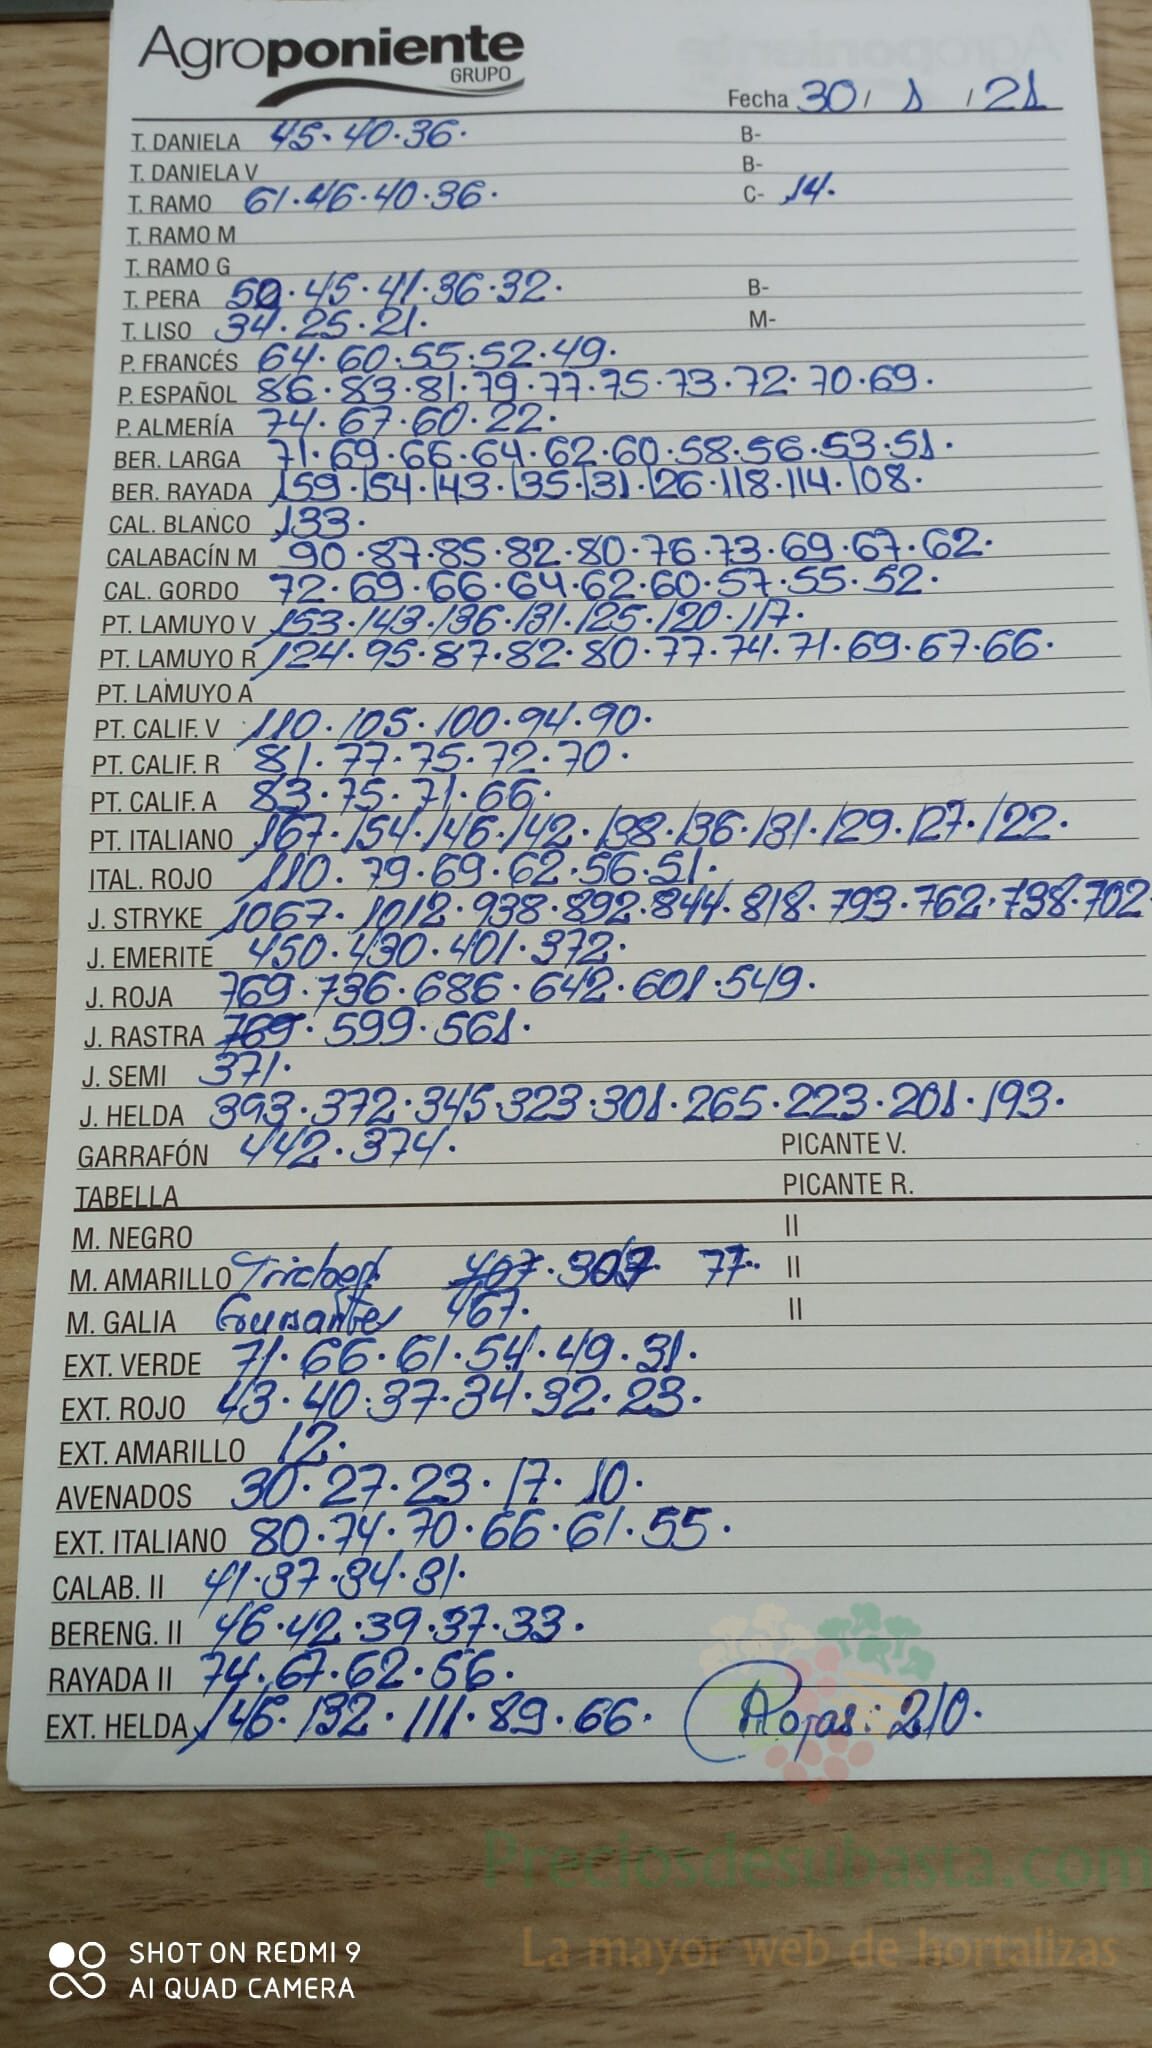 Agroponiente
GRUPO
Fecha 30 / 1 / 21
T. DANELA 45. 40. 36. B-
T. DANIELA V B-
T. RAMO 61. 46. 40. 36. C- 14.
T. RAMO M
T. RAMO G
T. PERA 50. 45. 41. 36. 32. B-
T. LISO 34. 25. 21. M-
P. FRANCÉS 64. 60. 55. 52. 49.
P. ESPAÑOL 86. 83. 81. 79. 77. 75. 73. 72. 70. 69.
P. ALMERÍA 74. 67. 60. 22.
BER. LARGA 71. 69. 66. 64. 62. 60. 58. 56. 53. 51.
BER. RAYADA 159. 154. 143. 135. 131. 126. 118. 114. 108.
CAL. BLANCO 133.
CALABACÍN M 90. 87. 85. 82. 80. 76. 73. 69. 67. 62.
CAL. GORDO 72. 69. 66. 64. 62. 60. 57. 55. 52.
PT. LAMUYO V 153. 143. 136. 131. 125. 120. 117.
PT. LAMUYO R 124. 95. 87. 82. 80. 77. 74. 71. 69. 67. 66.
PT. LAMUYO A
PT. CALIF. V 110. 105. 100. 94. 90.
PT. CALIF. R 81. 77. 75. 72. 70.
PT. CALIF. A 83. 75. 71. 66.
PT. ITALIANO 167. 154. 146. 142. 138. 136. 131. 129. 127. 122.
ITAL. ROJO 110. 79. 69. 62. 56. 51.
J. STRYKE 1067. 1012. 938. 892. 844. 818. 793. 762. 738. 702.
J. EMERITE 450. 430. 401. 372.
J. ROJA 769. 736. 686. 642. 601. 549.
J. RASTRA 599. 561.
J. SEMI 371.
J. HELDA 393. 372. 345. 323. 301. 265. 223. 201. 193.
GARRAFÓN 442. 374. PICANTE V.
TABELLA PICANTE R.
M. NEGRO II
M. AMARILLO 77. II
M. GALIA 467. II
EXT. VERDE 71. 66. 61. 54. 49. 31.
EXT. ROJO 43. 40. 37. 34. 32. 23.
EXT. AMARILLO 12.
AVENADOS 30. 27. 23. 17. 10.
EXT. ITALIANO 80. 74. 70. 66. 61. 55.
CALAB. II 41. 37. 34. 31.
BERENG. II 46. 42. 39. 37. 33.
RAYADA II 74. 67. 62. 56.
EXT. HELDA 146. 132. 111. 89. 66. Rojas: 210.
Preciosdesubasta.com
La mayor web de hortalizas
SHOT ON REDMI 9
AI QUAD CAMERA